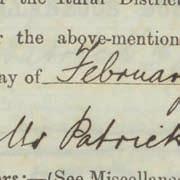 the Rural District
the above-mention
ay of Februar
Mr Patrick
(See Miscellane